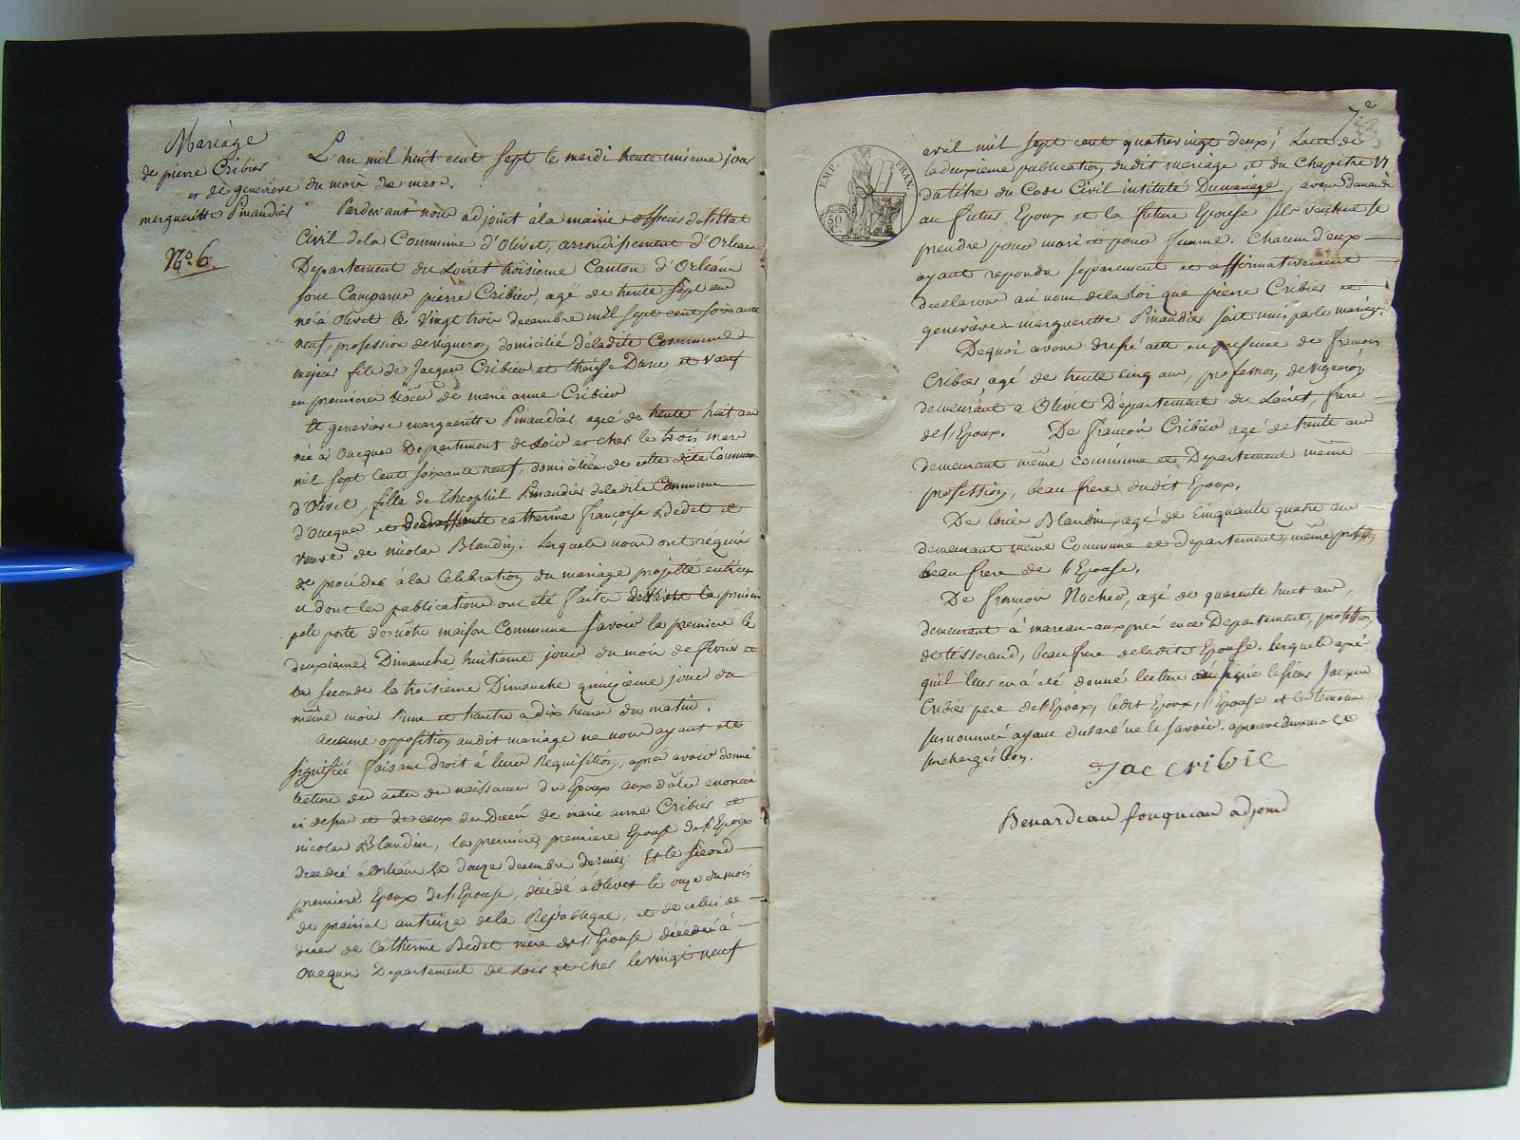 Mariage
de pierre Cribier
et de genevieve
margueritte Pinaudier
No. 6.
L'an mil huit cent sept le mardi trente unieme jour
du mois de mars.
Pardevant nous adjoint à la mairie officier de l'Etat
Civil de la Commune d'Olivet, arrondissement d'Orleans
Departement du Loiret troisieme Canton d'Orleans
sont Comparus pierre Cribier, agé de trente sept ans
né à Olivet le vingt trois decembre mil sept cent soixante
neuf, profession de vigneron, domicilié de ladite Commune
majeur fils de Jacques Cribier et therese et veuf
en premieres noces de marie anne Cribier
Et genevieve margueritte Pinaudier, agée de trente huit ans
née à Oucques Departement de Loir et cher le trois mars
mil sept cent soixante neuf, domiciliée de cette dite Commune
d'Olivet, fille de Theophile Pinaudier de ladite Commune
d'Oucques et catherine françoise Bedet et
veuve de nicolas Blandin. Lesquels nous ont requis
de proceder à la Celebration du mariage projetté entr'eux
et dont les publications ont été faites devant la princi
pale porte de notre maison Commune Savoir la premiere le
deuxieme Dimanche huitieme jour du mois de fevrier et
la seconde le troisieme Dimanche quinzieme jour du
même mois l'une et l'autre a dix heures du matin.
Aucune opposition audit mariage ne nous ayant été
signifiée faisant droit à leur Requisition, après avoir donné
lecture des actes de naissance des Epoux aux dates enoncées
ci dessus et de ceux des Décés de marie anne Cribier et
nicolas Blandin, la premiere, premiere Epouse de l'Epoux
decedée à Orleans le douze decembre dernier Et le second
premier Epoux de l'Epouse, décédé à Olivet le onze du mois
de prairial an treize de la Republique, et de celui de
deces de Catherine Bedet mere de l'Epouse décédée à
Oucques Departement de Loir et cher le vingt neuf
7e
EMP. FRAN.
50
C.
avril mil sept cent quatre vingt deux; L'acte de
la deuxieme publication dudit mariage et du Chapitre VI
du titre du Code Civil institulé Du mariage, avons Demandé
au futur Epoux et la future Epouse s'ils veulent se
prendre pour mari et pour femme. Chacun d'eux
ayant repondu separement et affirmativement
declarons au nom de la Loi que pierre Cribier et
genevieve margueritte Pinaudier sont unis par le mariage.
De quoi avons dressé acte en presence de françois
Cribier agé de trente cinq ans, profession de vigneron
demeurant a Olivet Département du Loiret, frere
de l'Epoux. De françois Cribier agé de trente ans
demeurant même commune et Departement même
profession, beau frere dudit Epoux.
De Blandin, agé de cinquante quatre ans
demeurant même Commune et departement, même profession
beau frere de l'Epouse.
De françois, agé de quarente huit ans,
demeurant à mareau-aux-prés même Departement, profession
de tisserand, beau frere de ladite Epouse. Lesquels après
qu'il leur en a été donné lecture ont signé le sieur Jacques
Cribier pere de l'Epoux, ledit Epoux, l'Epouse et les temoins
susnommés ayant declaré ne le savoir.
surchargés bon.
Jac cribie
Benardeau fougneau adjoint